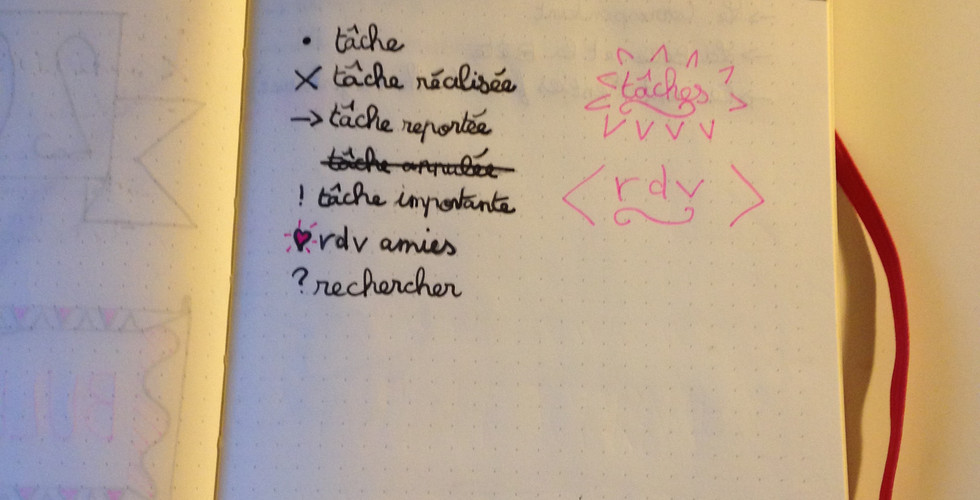 • tâche
X tâche réalisée
→ tâche reportée
tâche annulée
! tâche importante
♥ rdv amies
? rechercher
tâches
< rdv >